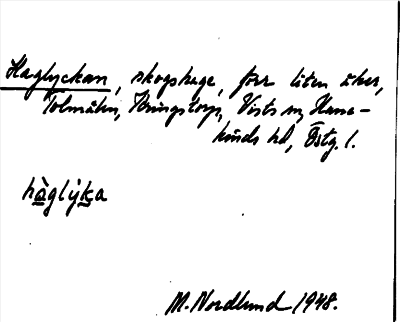 Haglyckan, skogshage, förr liten åker,
Tolmåln, Bringstorp, Vists sn, Hane-
kinds hd, Östg. l.
hàglýka
M. Nordlund 1948.